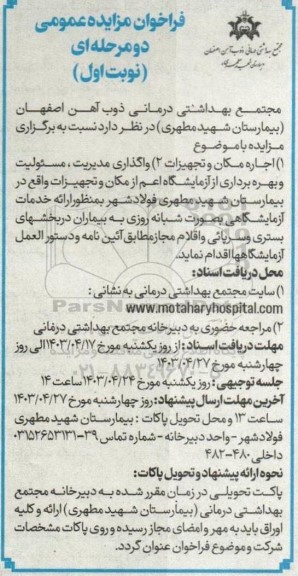 فراخوان مزایده عمومی
دو مرحله ای
(نوبت اول)
مجتمع بهداشتی درمانی ذوب آهن اصفهان
(بیمارستان شهید مطهری) در نظر دارد نسبت به برگزاری
مزایده با موضوع
۱) اجاره مکان و تجهیزات ۲) واگذاری مدیریت ، مسئولیت
و بهره برداری از آزمایشگاه اعم از مکان و تجهیزات واقع در
بیمارستان شهید مطهری فولادشهر بمنظور ارائه خدمات
آزمایشگاهی بصورت شبانه روزی به بیماران در بخشهای
بستری و سرپائی و اقلام مجاز مطابق آئین نامه و دستور العمل
آزمایشگاهها اقدام نماید.
محل دریافت اسناد:
۱) سایت مجتمع بهداشتی درمانی به نشانی :
www.motaharyhospital.com
۲) مراجعه حضوری به دبیرخانه مجتمع بهداشتی درمانی
مهلت دریافت اسناد : از روز یکشنبه مورخ ۱۴۰۳/۰۴/۱۷ الی روز
چهارشنبه مورخ ۱۴۰۳/۰۴/۲۷
جلسه توجیهی : روز یکشنبه مورخ ۱۴۰۳/۰۴/۲۴ ساعت ۱۴
آخرین مهلت ارسال پیشنهاد: روز چهارشنبه مورخ ۱۴۰۳/۰۴/۲۷
ساعت ۱۳ و محل تحویل پاکات : بیمارستان شهید مطهری
فولادشهر - واحد دبیرخانه - شماره تماس ۳۹-۰۳۱۵۲۶۵۳۱۳۱
داخلی ۴۸۰-۴۸۲
نحوه ارائه پیشنهاد و تحویل پاکات:
پاکت تحویلی در زمان مقرر شده به دبیرخانه مجتمع
بهداشتی درمانی (بیمارستان شهید مطهری) ارائه و کلیه
اوراق باید به مهر و امضای مجاز رسیده و روی پاکات مشخصات
شرکت و موضوع فراخوان عنوان گردد.